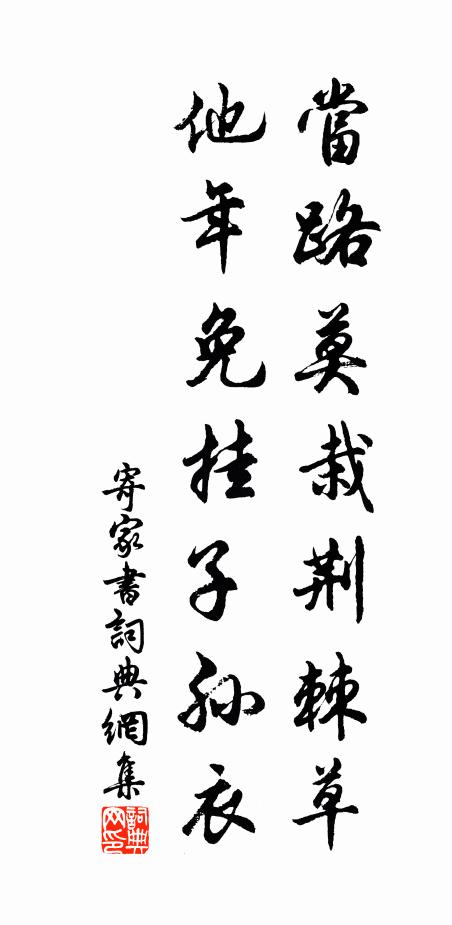 當路莫栽荆棘草
他年免挂子孫衣
寄家書詞典網集
詞典网印